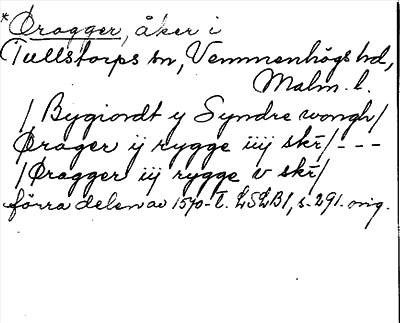 *Øragger, åker i
Tullstorps sn, Vemmenhögs hd,
Malm. l.
/ Bygiordt y Syndre wongh/
Ørager ij rygge iiij skr̄/ - - -
/ Øragger iij rygge v skr̄/
förra delen av 1570-t. LSLB1, s. 291. orig.